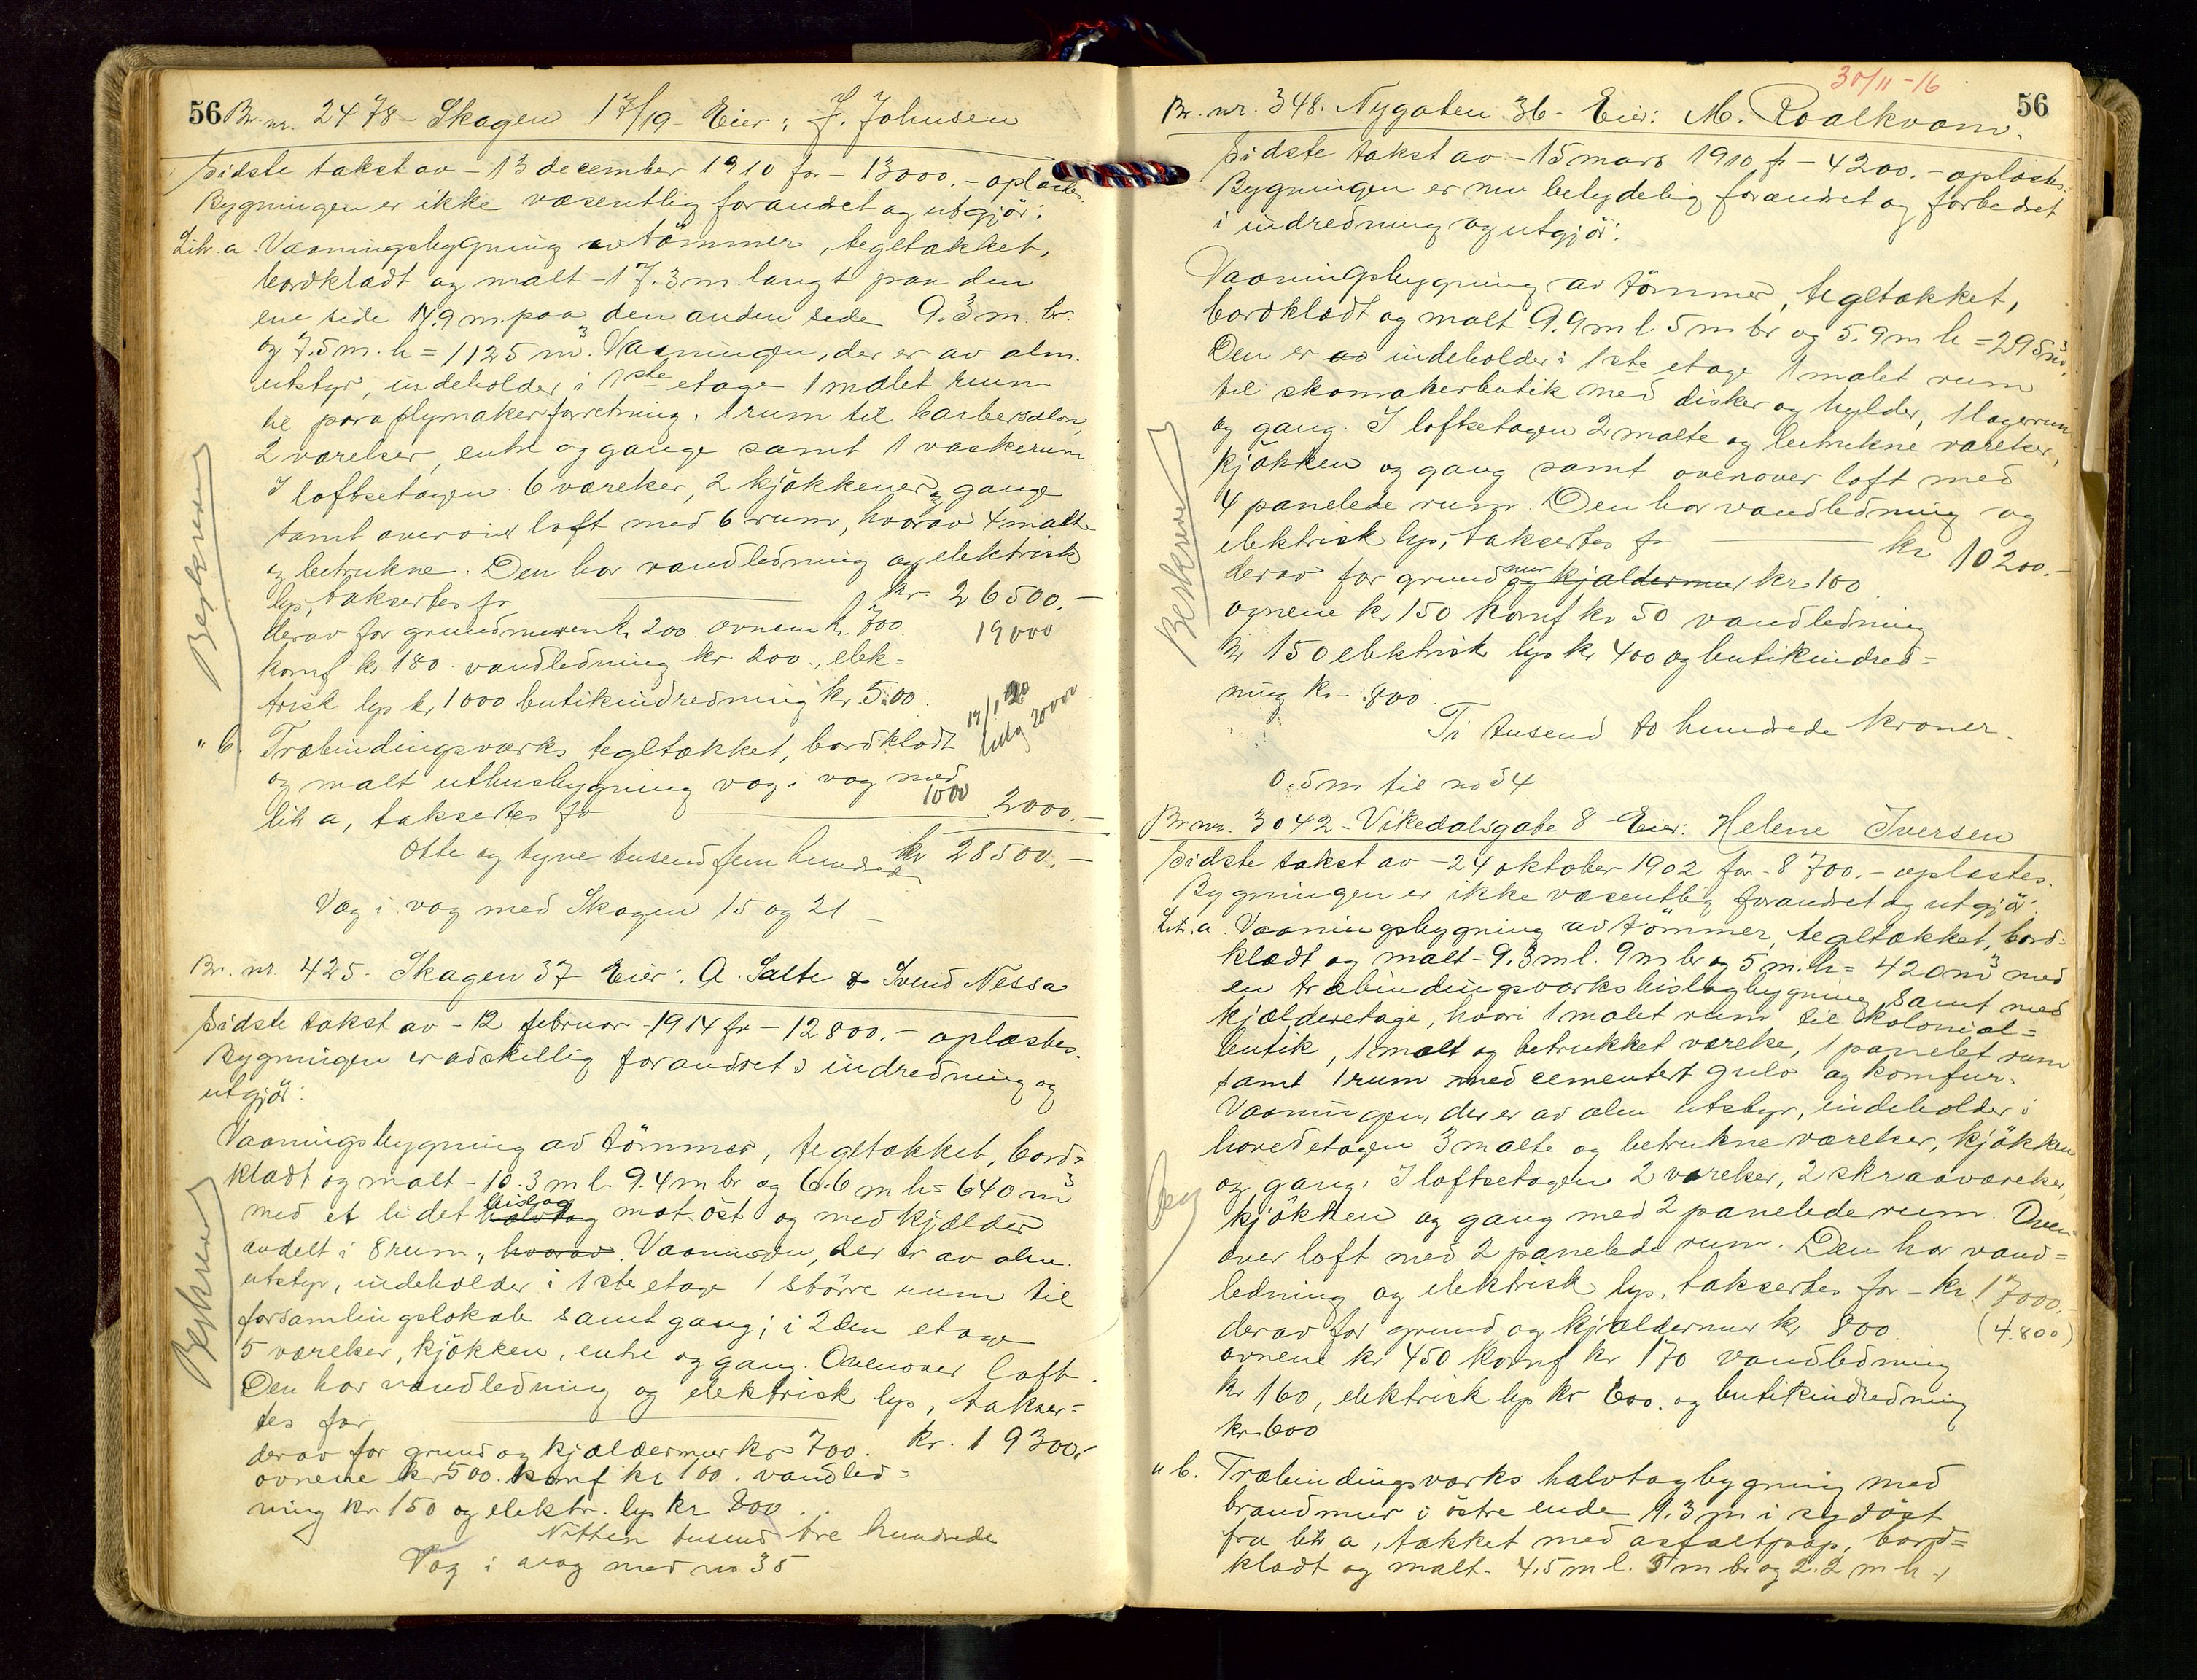 56 Br. nr. 2478 - Skagen 17/19 - Eier: J. Johnsen
Sidste takst av - 13 december 1910 for - 13000.- oplæstes.
Bygningen er ikke væsentlig forandret og utgjör:
Litr. a Vaaningsbygning av tömmer, tegltækket,
bordklædt og malt - 17.3 m. langt paa den
ene side 14.9 m. paa den anden side 9.3 m. br.
og 7.5 m. h = 1125 m³. Vaaningen, der er av alm.
utstyr, indeholder i 1ste etage 1 malet rum
til paraplymakerforretning, 1 rum til barbersalon,
2 værelser, entre og gange samt 1 vaskerum
I loftsetagen 6 værelser, 2 kjökkener og gange
samt overover loft med 6 rum, hvorav 4 malte
og betrukne. Den har vandledning og elektrisk
lys, taksertes for kr. 26500.-
derav for grundmuren kr 200. ovnene kr. 700. 19000
komf kr 180. vandledning kr 200., elek=
trisk lys kr 1000 butikindredning kr 500.
Beskrevet
" b. Træbindingsværks tegltækket, bordklædt
og malt uthusbygning væg i væg med
litr a, taksertes for 1000 2000.-
Otte og tyve tusend fem hundrede kr 28500.-
Væg i væg med Skagen 15 og 21 -
Br. nr. 425. Skagen 37 Eier: A. Salte & Svend Nessa
Sidste takst av - 12 februar 1914 for - 12800.- oplæstes.
Bygningen er adskillig forandret i indredning og
utgjör:
Vaaningsbygning av tömmer, tegltækket, bord=
klædt og malt - 10.3 m l. 9.4 m br og 6.6 m h = 640 m³
med et lidet halvtag bislag mot öst og med kjælder
avdelt i 8 rum, hvorav. Vaaningen, der er av alm.
utstyr, indeholder i 1ste etage 1 större rum til
forsamlingslokale samt gang; i 2den etage
5 værelser, kjökken, entre og gang. Ovenover loft.
Den har vandledning og elektrisk lys, takser=
tes for kr. 19300.-
derav for grund og kjældermur kr 700.
ovnene kr 500. komf kr 100. vandled=
ning kr 150 og elektr. lys kr 800..
Beskrevet
Nitten tusend tre hundrede
Væg i væg med no 35
30/11-16
Br. nr. 348. Nygaten 36 - Eier: M. Roalkvam. 56
Sidste takst av - 15 mars 1910 fr - 4200.- oplæstes.
Bygningen er nu betydelig forandret og forbedret
i indredning og utgjör:
Vaaningsbygning av tömmer, tegltækket,
bordklædt og malt 9.9 m l. 5 m br og 5.9 m h = 295 m³.
Den er av indeholder: 1ste etage 1 malet rum
til skomakerbutik med disker og hylder, 1 lagerrum
og gang. I loftsetagen 2 malte og betrukne værelser,
kjökken og gang samt ovenover loft med
4 panelede rum. Den har vandledning og
elektrisk lys, taksertes for kr 10200.-
derav for grundmur og kjældermur kr 100
ovnene kr 150 komf kr 50 vandledning
kr 150 elektrisk lys kr 400 og butikindred=
ning kr - 800.
Beskrevet
Ti tusend to hundrede kroner.
0.5 m til no 34
Br. nr. 3042 - Vikedalsgate 8 Eier: Helene Iversen
Sidste takst av - 24 oktober 1902 for - 8700.- oplæstes.
Bygningen er ikke væsentlig forandret og utgjör:
Litr. a. Vaaningsbygning av tömmer, tegltækket, bord=
klædt og malt - 9.3 m l. 9 m br og 5 m. h = 420 m³ med
en træbindingsværks bislagbygning samt med
kjælderetage, hvori 1 malet rum til kolonial=
butik, 1 malt og betrukket værelse, 1 panelet rum
samt 1 rum med cementert gulv og komfur.
Vaaningen, der er av alm utstyr, indeholder i
hovedetagen 3 malte og betrukne værelser, kjökken
og gang. I loftsetagen 2 værelser, 2 skraaværelser,
kjökken og gang med 2 panelede rum. Oven=
over loft med 2 panelede rum. Den har vand=
ledning og elektrisk lys, taksertes for - kr 17000.-
derav for grund og kjældermur kr 800. (4.800)
ovnene kr 450 komf kr 170 vandledning
kr 160, elektrisk lys kr 600. og butikindredning
kr 600
" b. Træbindingsværks halvtagbygning med
brandmur i östre ende 1.3 m i sydöst
fra litr a, tækket med asfaltpap, bord=
klædt og malt. 4,5 m l. 3 m br og 2.2 m h.